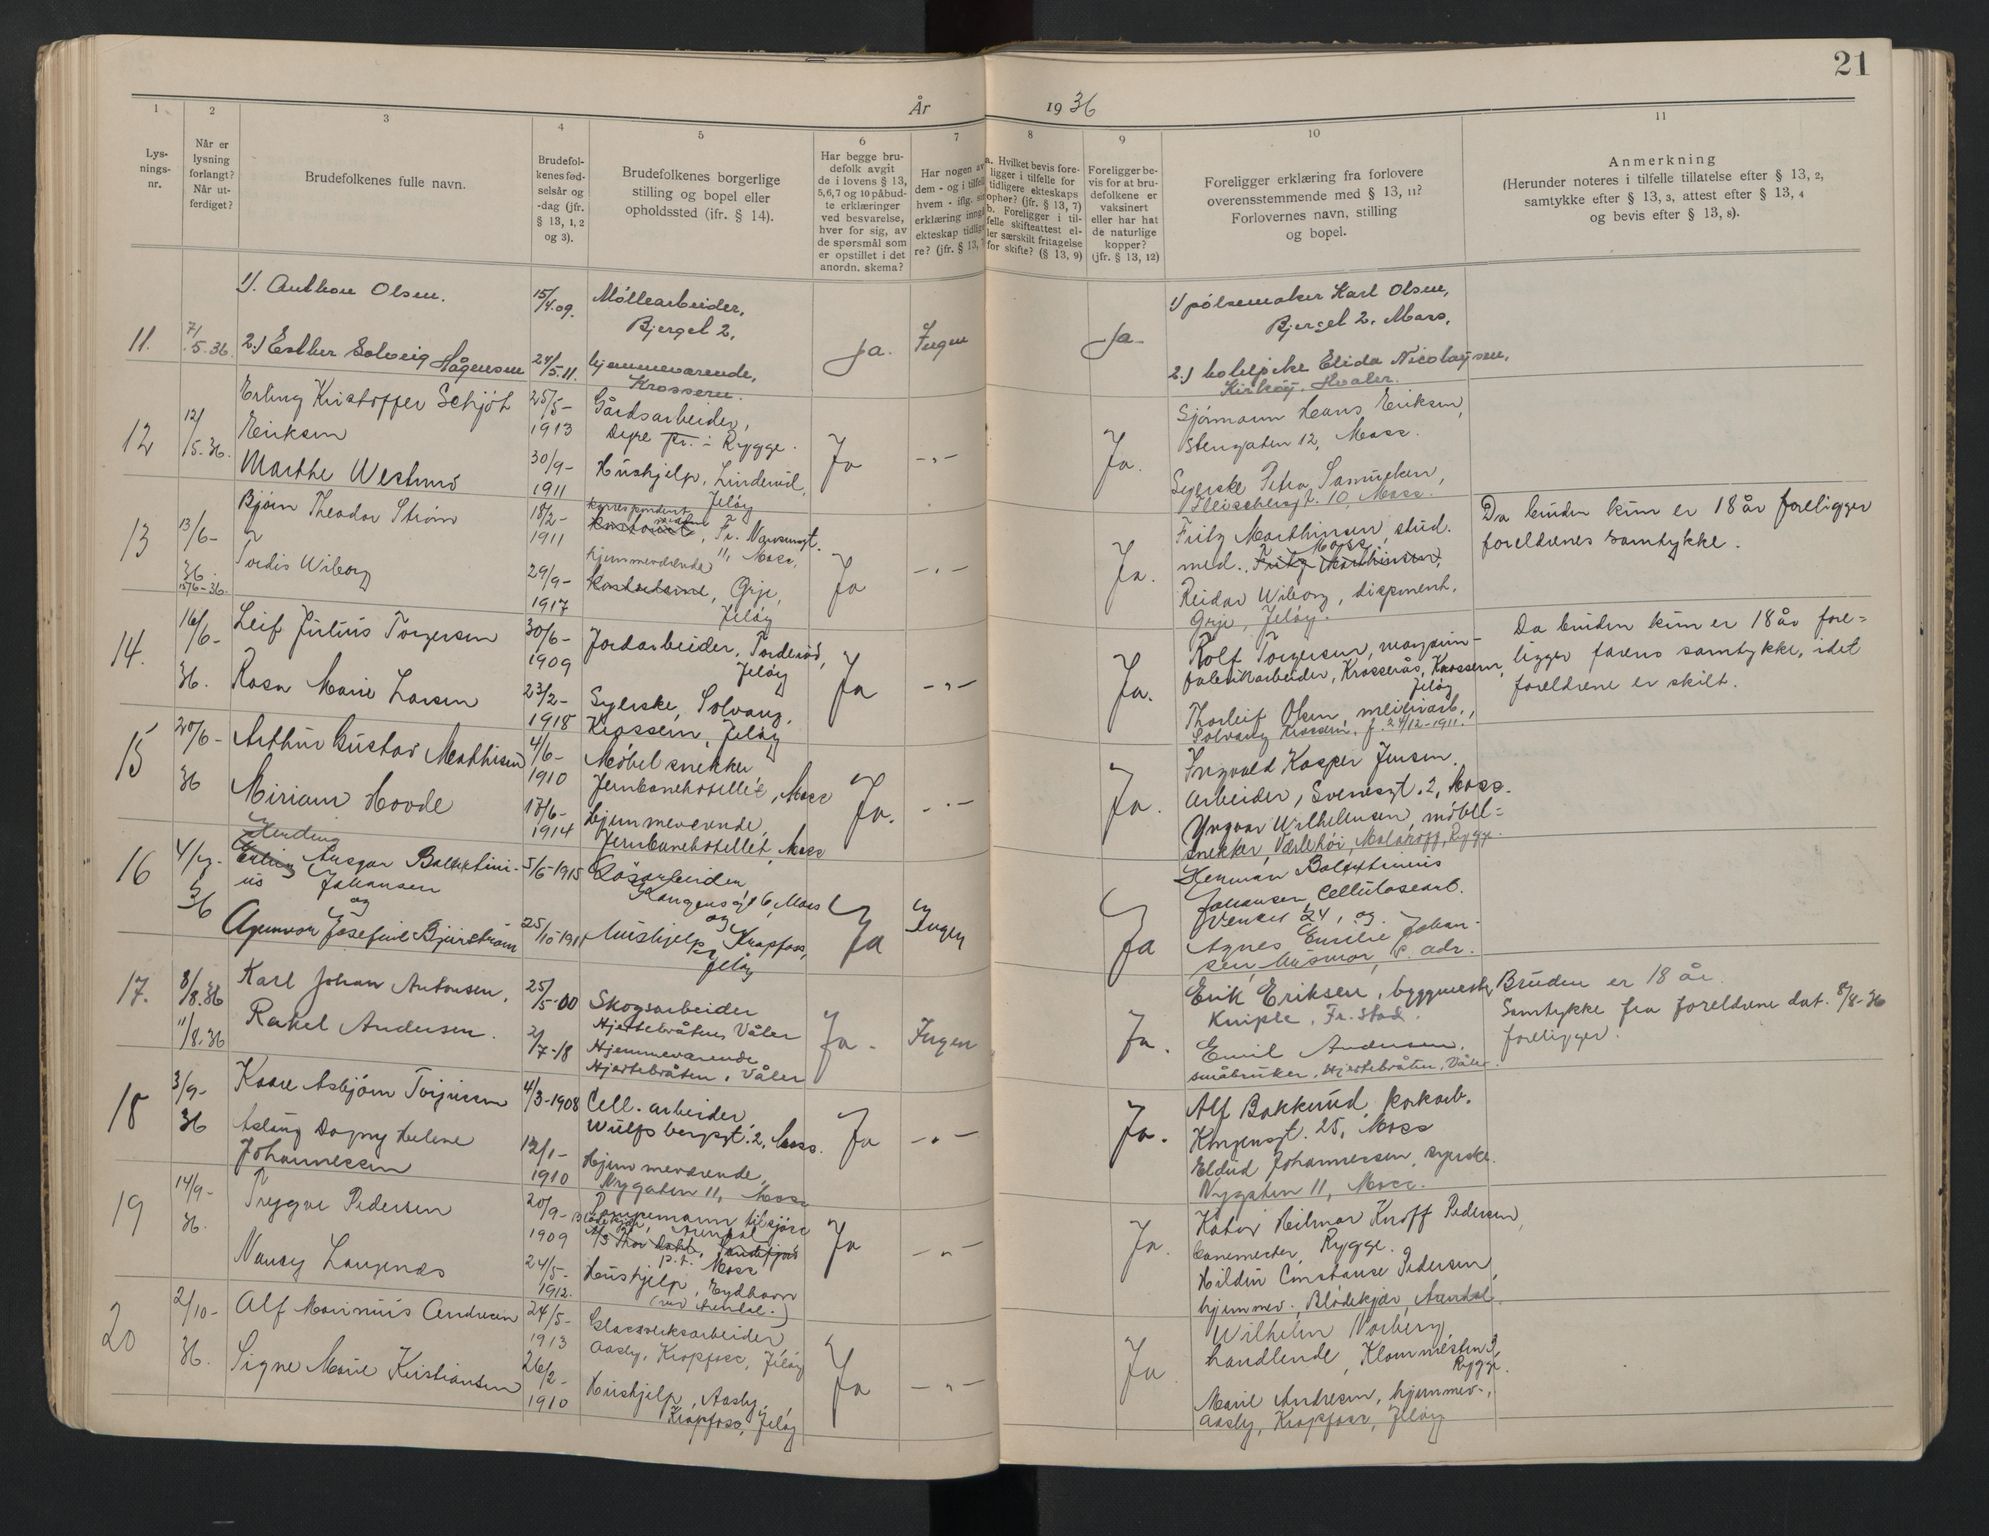 21
År 1936
1
2
3
4
5
6
7
8
9
10
11
Lys-
nings-
nr.
Når er
lysning
forlangt?
Når ut-
ferdiget?
Brudefolkenes fulle navn.
Brudefol-
kenes fød-
selsår og
-dag (jfr.
§ 13, 1, 2
og 3).
Brudefolkenes borgerlige
stilling og bopel eller
opholdssted (ifr. § 14).
Har begge bru-
defolk avgit
de i lovens § 13,
5, 6, 7 og 10 påbud-
te erklæringer
ved besvarelse,
hver for sig, av
de spørsmål som
er opstillet i det
anordn. skema?
Har nogen av
dem - og i tilfell
hvem - iflg. si
erklæring inng
ekteskap tidlig
re? (jfr. § 13, 7
a. Hvilket bevis fore-
ligger i tilfelle for
tidligere ekteskaps
ophør? (jfr. § 13, 7)
b. Foreligger i til-
felle skifteattest el-
ler særskilt fritagelse
for skifte? (§ 13, 9)
Foreligger be-
vis for at bru-
defolkene er
vaksinert
eller har hat
de naturlige
kopper?
(jfr. § 13, 12)
Foreligger erklæring fra forlovere
overensstemmende med § 13, 11?
Forlovernes navn, stilling
og bopel.
Anmerkning
(Herunder noteres i tilfelle tillatelse efter § 13, 2,
samtykke efter § 13, 3, attest efter § 13, 4
og bevis efter § 13, 8).
11.
7/
5.36.
1). Anthon Olsen.
2.) Esther Solveig
Hågensen
15/
4.09.
24/
5.11.
Møllearbeider,
Bjerget 2,
hjemmeværende,
Krossern.
Ja.
Ingen
Ja
1) pølsemaker Karl Olsen,
Bjerget 2. Moss,
2.) Elida Nicolaysen,
Kirkøy, Hvaler.
12
12/
5.36.
Erling Kristoffer Schjøt
Eriksen
Marthe Westmo
25/5-
1913
30/9-
1911
Gårdsarbeider,
Dyre pr. i Rygge.
Hushjelp, Linderød,
Jeløy
Ja
-"-
Ja.
Sjømann Hans Eriksen,
Stengaten 12, Moss.
Syerske Petra Samuelsen,
Fleischersgt. 10, Moss.
13
13/6-
36.
15/6-36.
Bjørn Theodor Strøm
Tordis Wiborg
18/2-
1911
29/9-
1917
korrespondent
Fr. Nansensgt.
11, Moss,
hjemmeværende
Grje,
Jeløy
Ja
-"-
Ja.
Fritz Marthinsen, stud.
med. Moss
Fritz Marthinsen,
Reidar Wiborg, disponent,
Grje, Jeløy.
Da bruden kun er 18 år foreligger
foreldrenes samtykke.
14.
16/
6-
36.
Leif Julius Torgersen
Rosa Marie Larsen
30/6-
1909
23/2-
1918
Jordarbeider, Torderød,
Jeløy
Syerske, Solvang,
Krossern, Jeløy
Ja
-"-
Ja.
Rolf Torgersen, margarin-
fabrikkarbeider, Krosserås, Krossern,
Jeløy
Thorleif Olsen, meieriarb.,
Solvang Krossern, f. 24/12-1911.
Da bruden kun er 18 år fore=
ligger farens samtykke, idet
foreldrene er skilt.
15
20/6-
36
Arthur Gustav Mathisen
Miriam Hovde
4/6-
1910
17/6-
1914
Møbelsnekker
Jernbanehotellet, Moss
hjemmeværende,
Jernbanehotellet, Moss
Ja.
-"-
Ja.
Ingvald Kasper Jensen.
Arbeider, Svenesgt. 2, Moss.
Yngvar Wilhelmsen, møbel=
snekker, Varlehøi, Malakoff, Rygge.
16
36
Ansgar
Johansen
og
Agunvor Josefine Bjurstrøm
5/6-1915
25/
10-1911
Løsarbeider
Kongensgt 6, Moss
og
Hushjelp, Krapfoss,
Jeløy
Ja
Ingen
Ja
Herman
Johansen, Cellulosearb.
24, og
Agnes Emilie Johan-
sen, husmor, s. adr.
17.
8/
8.36
11/
8.36
Karl Johan Antonsen.
Rakel Andersen.
25/
5-00
2/
7-18
Skogsarbeider
Hjertebråten, Våler
Hjemmeværende
Hjertebråten, Våler
Ja.
Ingen
Ja.
Erik Eriksen, byggmester
Kniple, Fr.stad.
Emil Andersen,
småbruker, Hjertebråten, Våler.
Bruden er 18 år.
Samtykke fra foreldrene dat. 8/8-36
foreligger.
18
3/9-
36
Kaare Asbjørn Torjussen
Aslaug Dagny Helene
Johannessen
4/3-1908
12/1-
1910
Cell. arbeider
Wulfsbergsgt. 2, Moss.
Hjemmeværende,
Nygaten 11, Moss
Ja
-"-
Ja.
Alf Bakkerud, korkarb.
Kongensgt. 25, Moss
Eldrid Johannessen, syerske.
Nygaten 11, Moss.
19
14/9-
36.
Trygve Pedersen
Nancy Langenes
20/9-
1909
24/5-
1912.
Pumpemann til sjøss
Arendal
M/S Thor Dahl, Sandefjord
p.t. Moss
Hushjelp, Eydhavn
(ved Arendal.)
Ja
-"-
Ja.
Hilmar Knoff Pedersen,
banemester, Rygge.
Hildur Constanse Pedersen,
hjemmev., Blødekjær, Arendal.
20
2/10-
36.
Alf Marinius Andresen
Signe Marie Kristiansen
24/5-
1913
26/2-
1910
Glassverksarbeider
Aasly, Krapfoss, Jeløy
Hushjelp, Aasly,
Krapfoss, Jeløy
Ja
-"-
Ja.
Wilhelm Norberg
handlende, Klommesten 3,
Rygge.
Marie Andresen, hjemmev.,
Aasly, Krapfoss, Jeløy